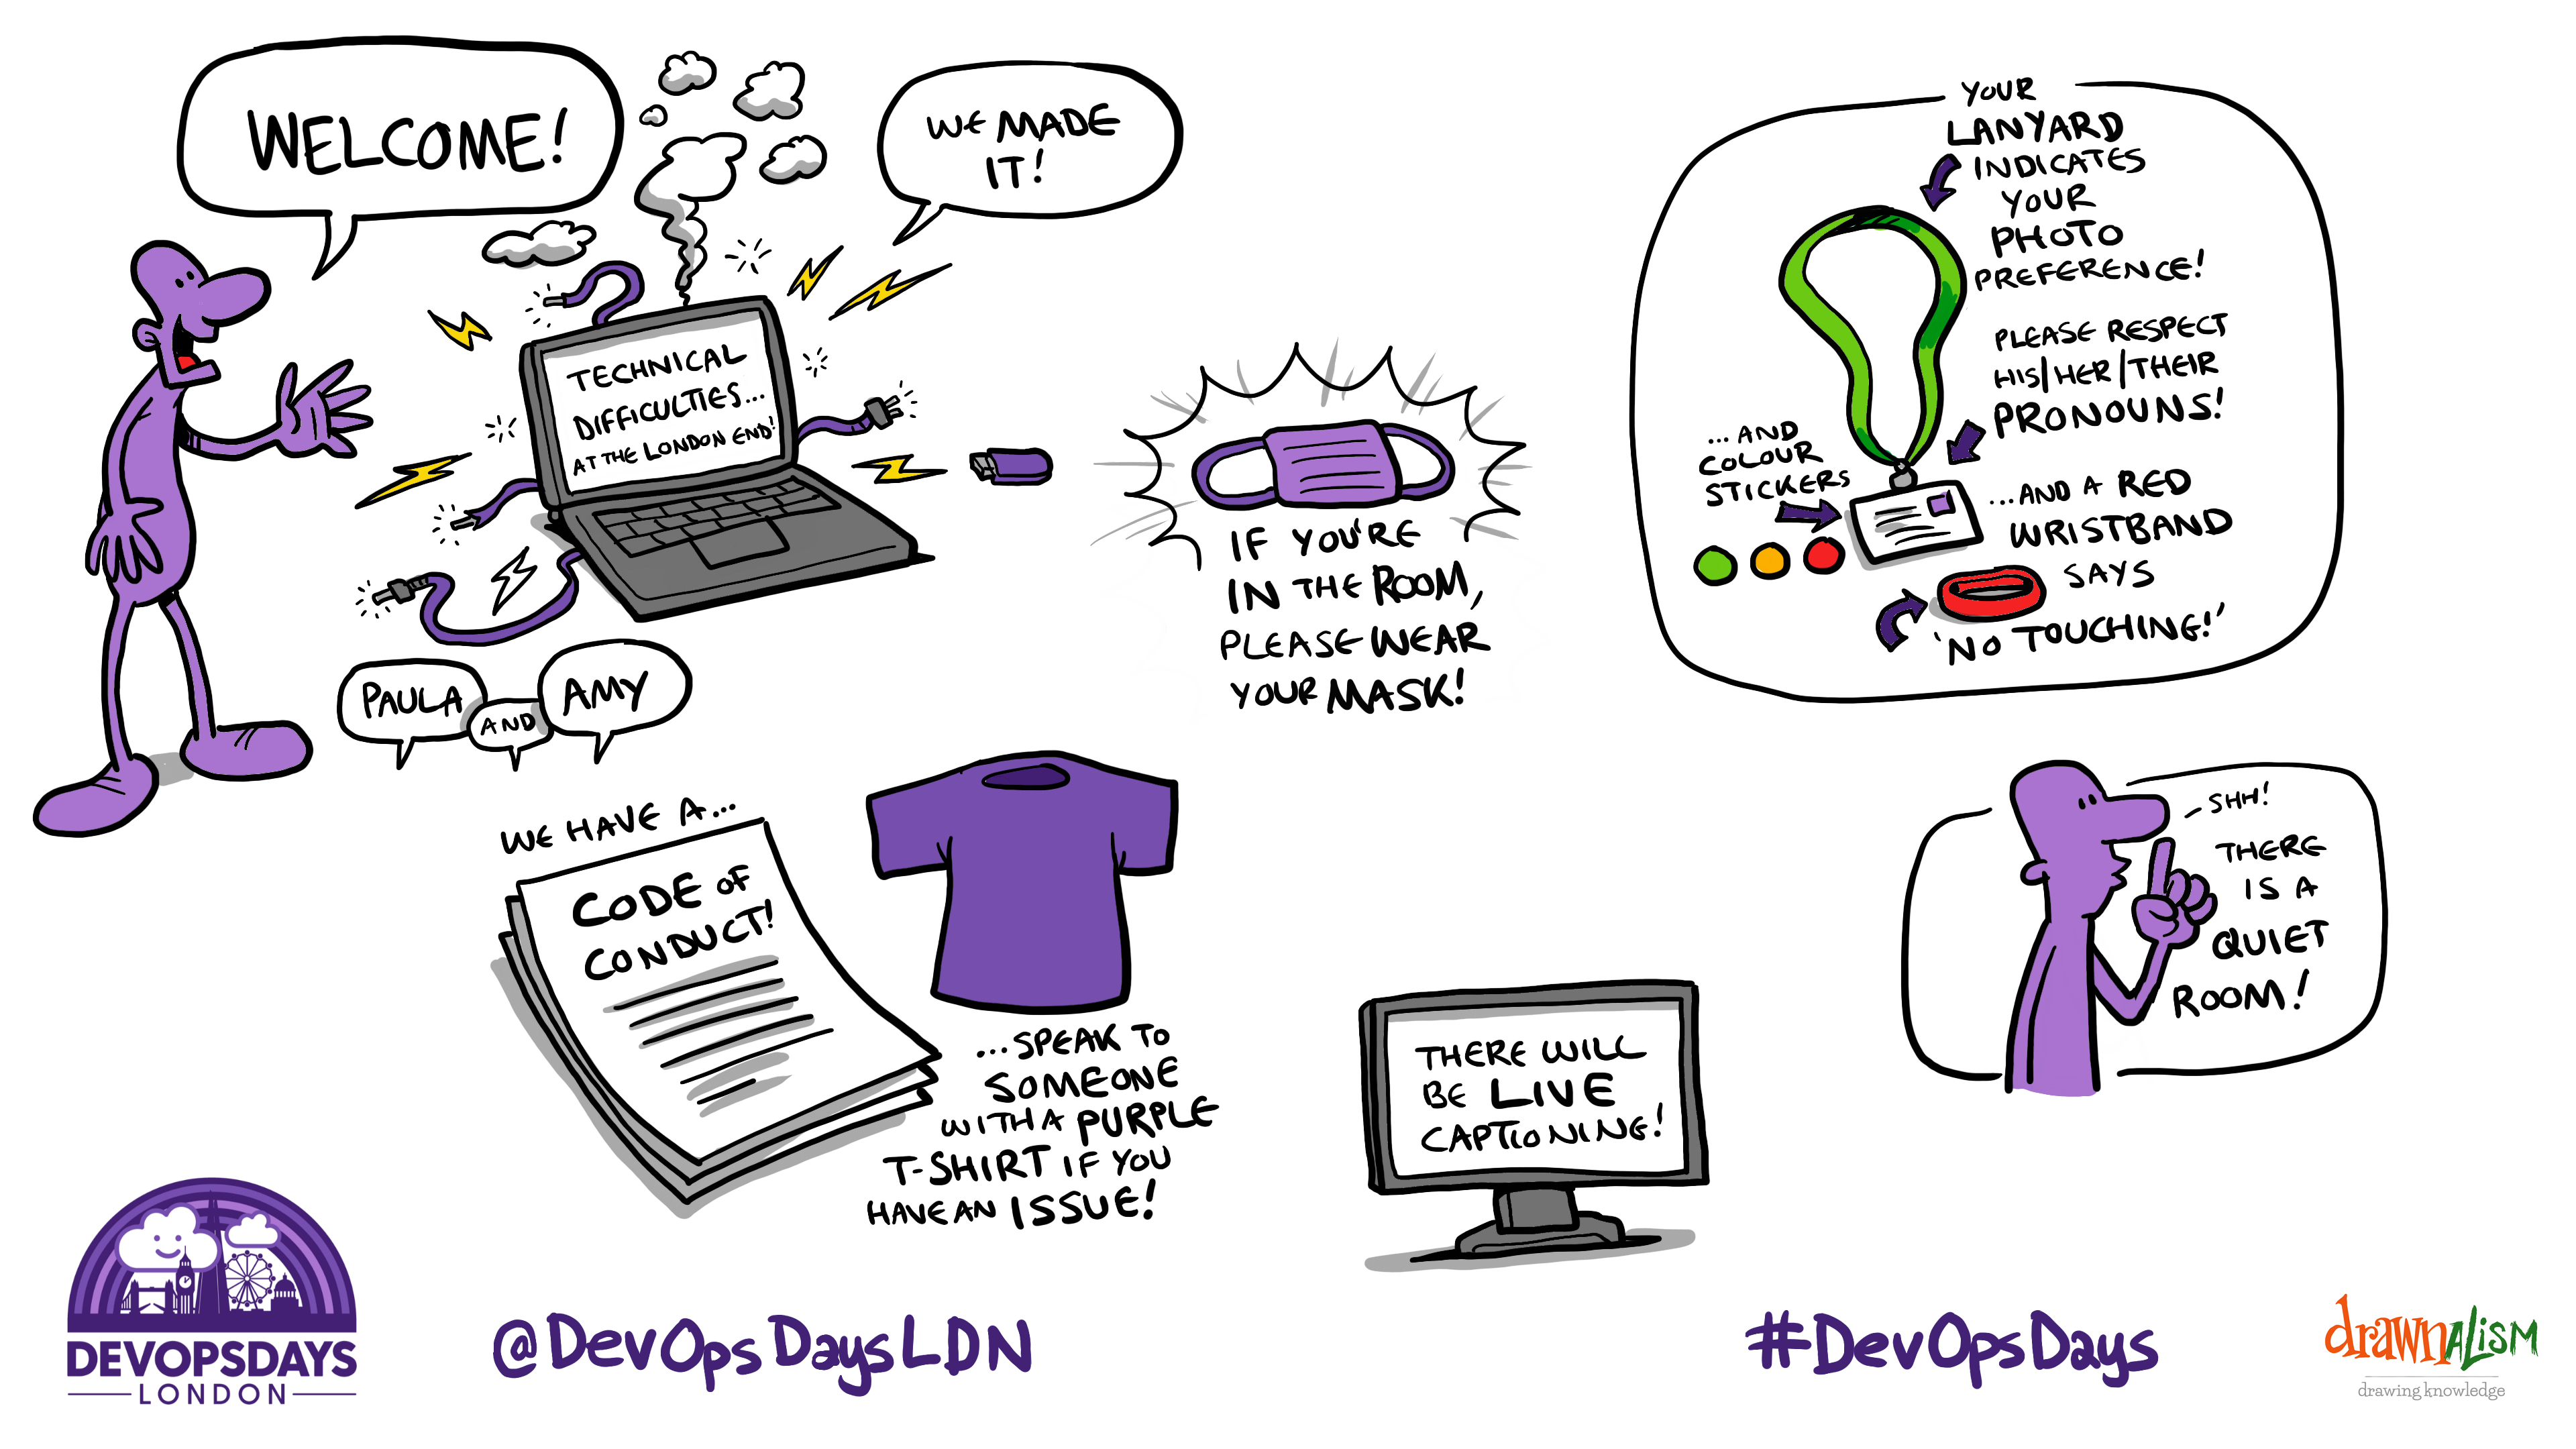 WELCOME!
WE MADE
IT!
TECHNICAL
DIFFICULTIES...
AT THE LONDON END!
PAULA
AND
AMY
IF YOU'RE
IN THE ROOM,
PLEASE WEAR
YOUR MASK!
YOUR
LANYARD
INDICATES
YOUR
PHOTO
PREFERENCE!
PLEASE RESPECT
HIS/HER/THEIR
PRONOUNS!
...AND
COLOUR
STICKERS
...AND A RED
WRISTBAND
SAYS
'NO TOUCHING!'
WE HAVE A...
CODE OF
CONDUCT!
...SPEAK TO
SOMEONE
WITH A PURPLE
T-SHIRT IF YOU
HAVE AN ISSUE!
THERE WILL
BE LIVE
CAPTIONING!
SHH!
THERE
IS A
QUIET
ROOM!
DEVOPSDAYS
LONDON
@DevOpsDaysLDN
#DevOpsDays
drawnALiSM
drawing knowledge